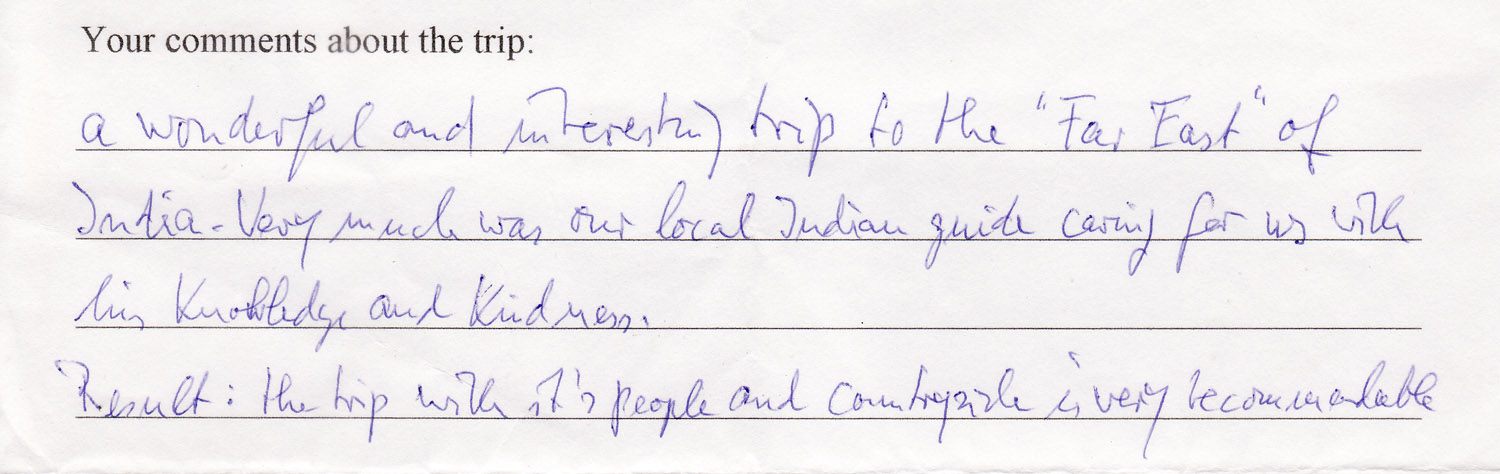 Your comments about the trip:
a wonderful and interesting trip to the "Far East" of
India - Very much was our local Indian guide caring for us with
his Knowledge and Kindness.
Result: the trip with it's people and countryside is very recommendable